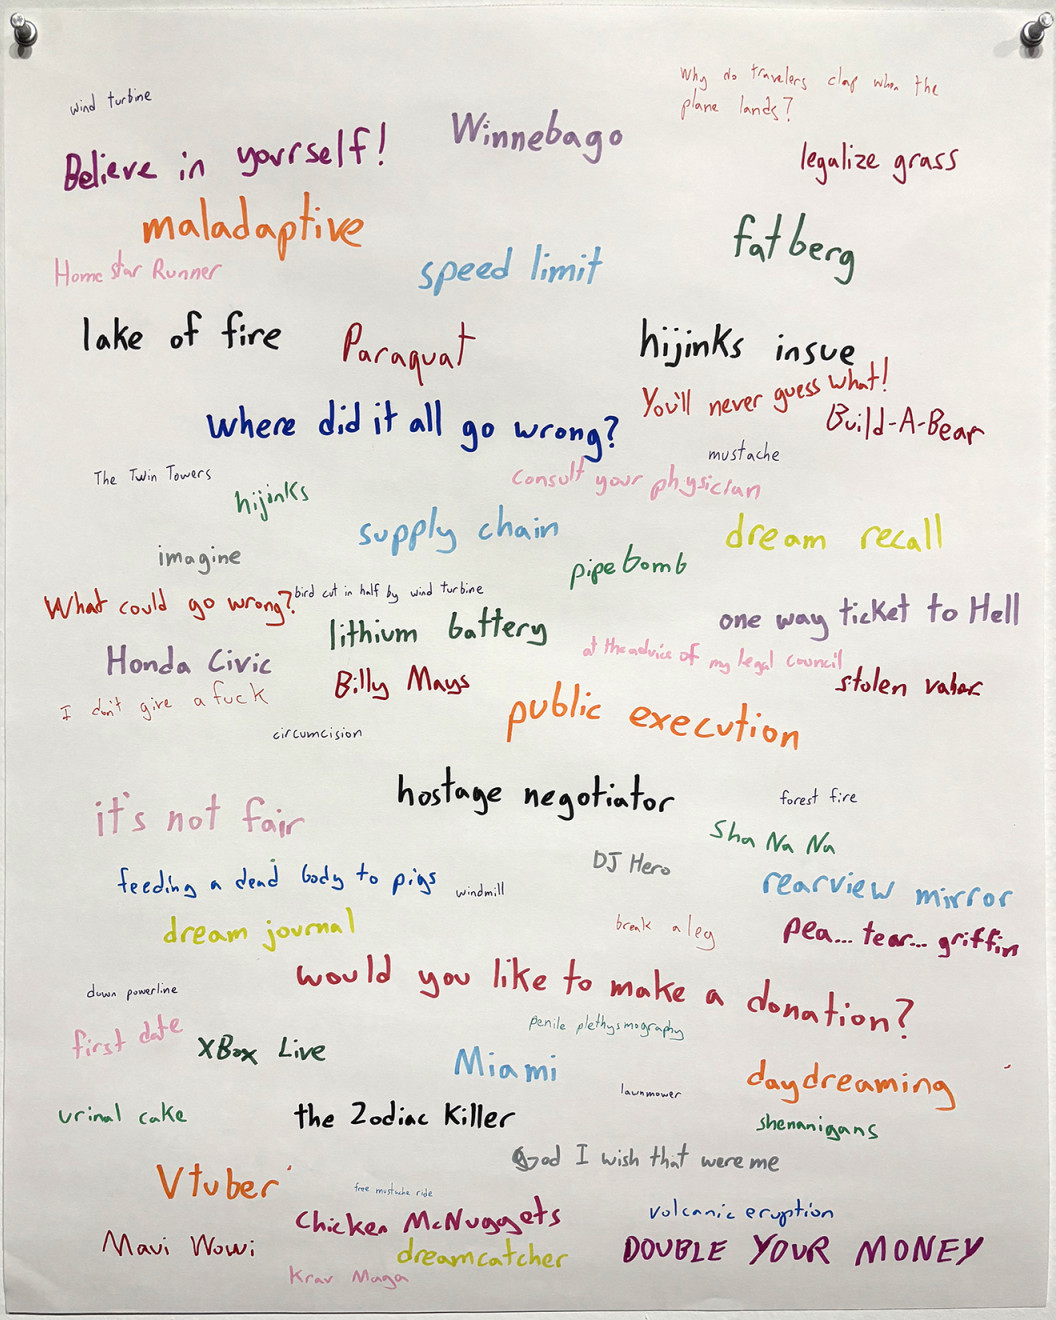 wind turbine
Why do travelers clap when the
plane lands?
Believe in yourself!
Winnebago
legalize grass
maladaptive
fatberg
Home Star Runner
speed limit
lake of fire
Paraquat
hijinks insue
You'll never guess what!
where did it all go wrong?
Build-A-Bear
mustache
The Twin Towers
consult your physician
hijinks
supply chain
dream recall
imagine
pipe bomb
What could go wrong?
bird cut in half by wind turbine
one way ticket to Hell
lithium battery
at the advice of my legal council
Honda Civic
Billy Mays
stolen valor
I don't give a fuck
public execution
circumcision
hostage negotiator
forest fire
it's not fair
Sha Na Na
DJ Hero
feeding a dead body to pigs
windmill
rearview mirror
dream journal
break a leg
pea... tear... griffin
would you like to make a donation?
down powerline
penile plethysmography
first date
XBox Live
Miami
daydreaming
lawnmower
urinal cake
the Zodiac Killer
shenanigans
God I wish that were me
Vtuber
free mustache ride
Chicken McNuggets
volcanic eruption
Maui Wowi
dreamcatcher
DOUBLE YOUR MONEY
Krav Maga